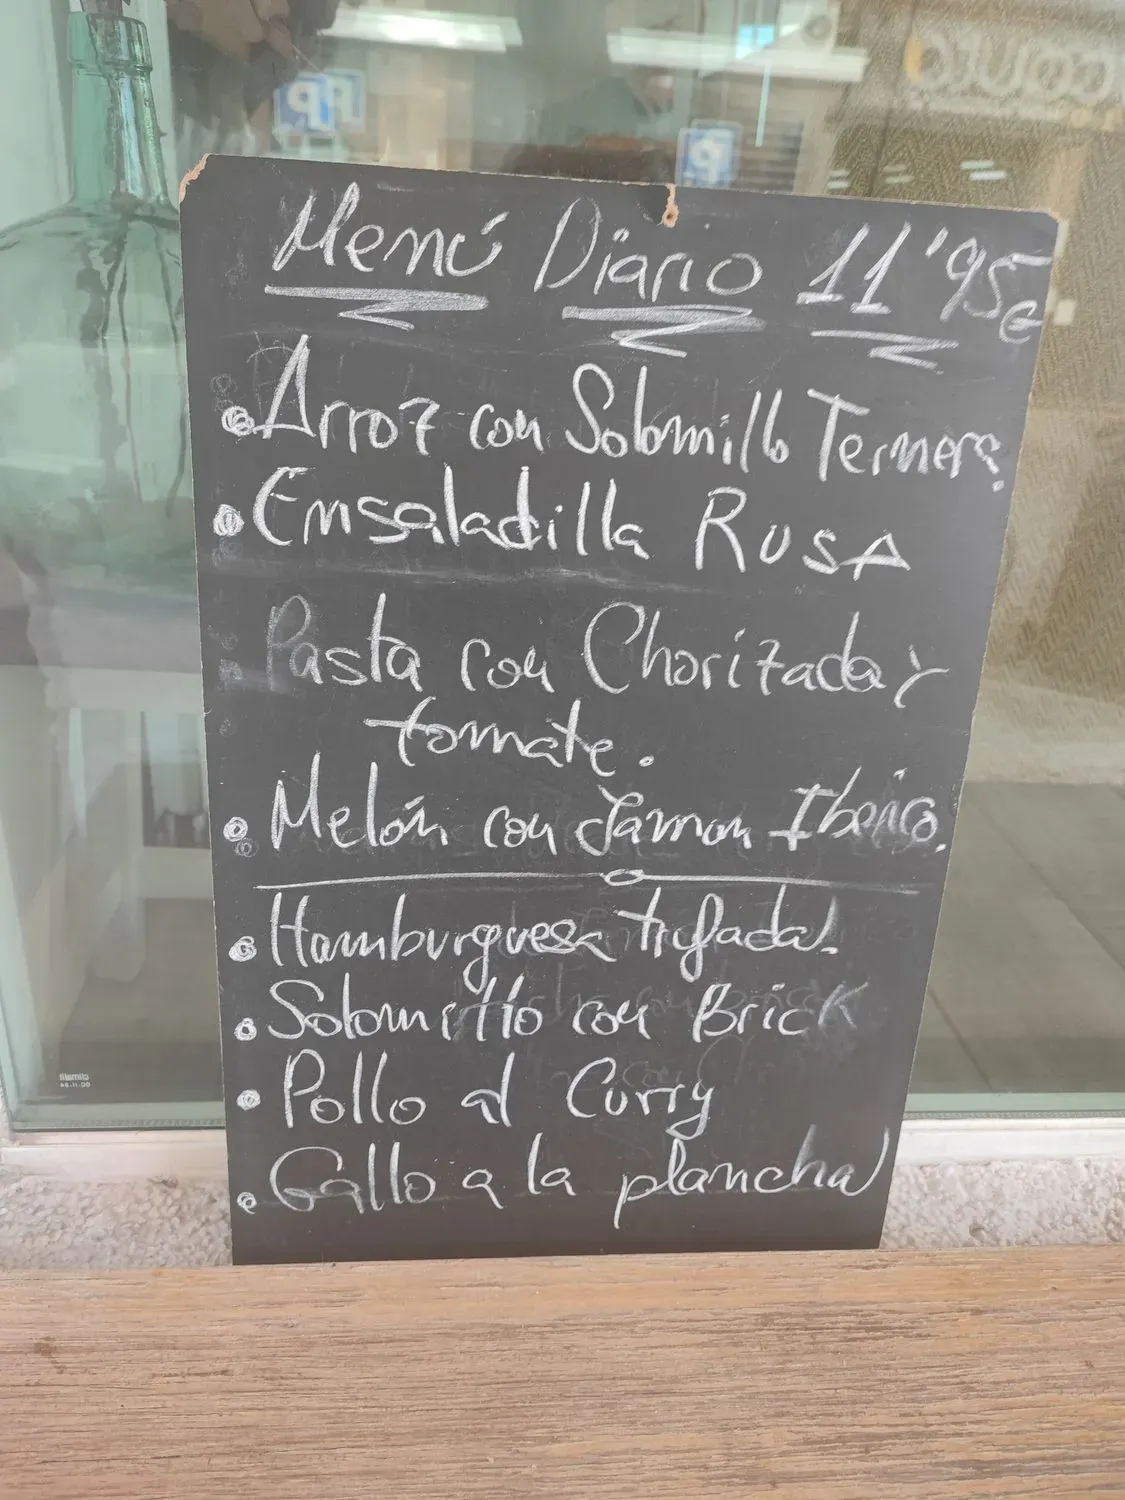 Menú Diario 11'95€
Arroz con Solomillo Ternera.
Ensaladilla Rusa
Pasta con Chorizada y
tomate.
Melón con Jamon Iberico.
Hamburguesa trufada.
Solomillo con Brick
Pollo al Curry
Gallo a la plancha